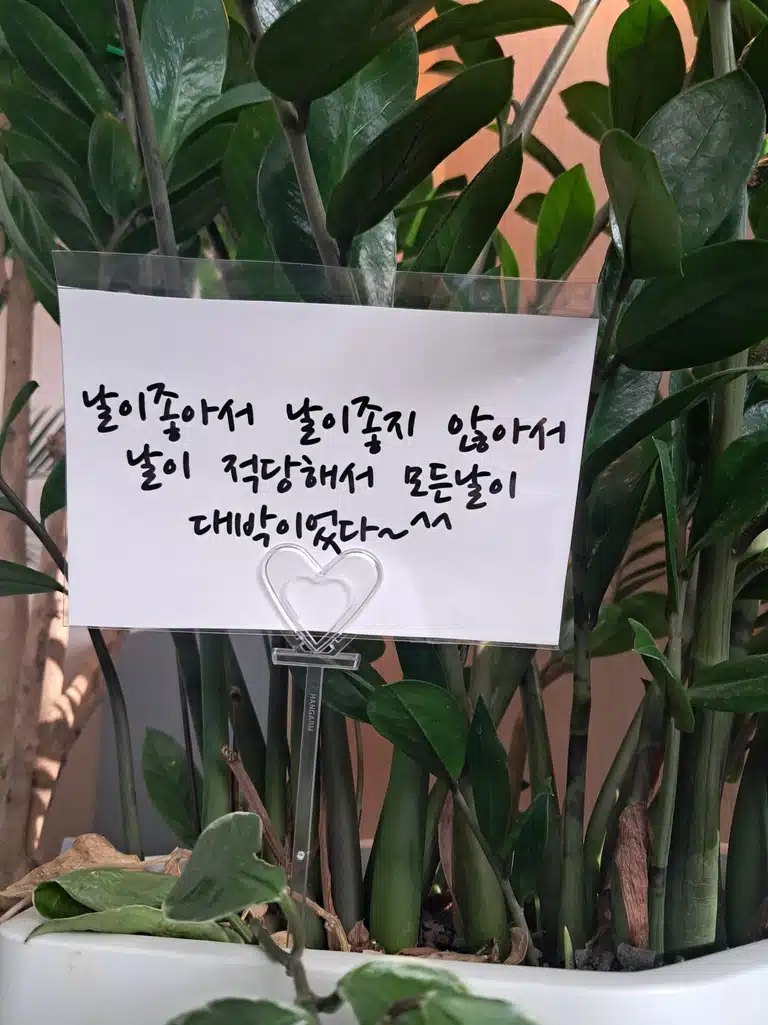 날이좋아서 날이좋지 않아서
날이 적당해서 모든날이
대박이었다~^^
HANGARM